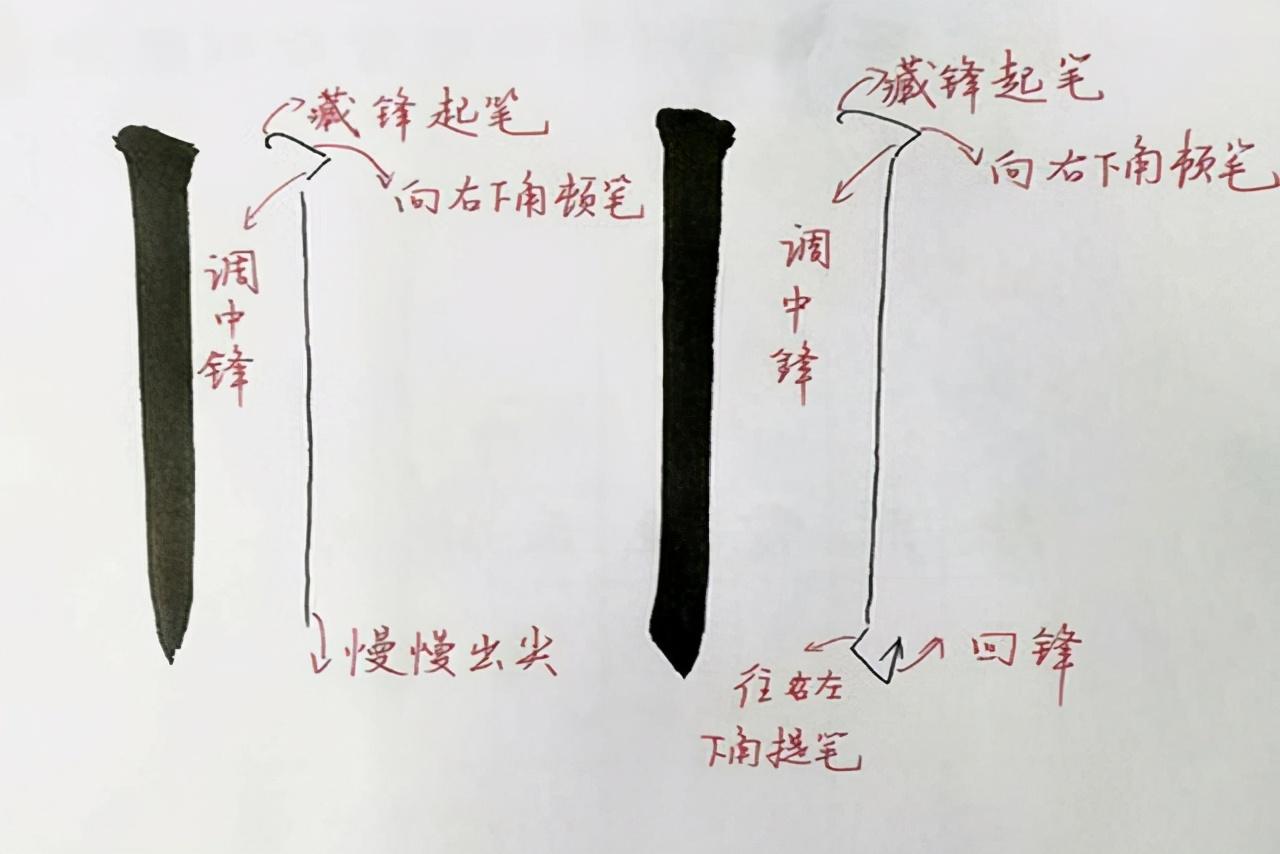 藏锋起笔
向右下角顿笔
调中锋
慢慢出尖
藏锋起笔
向右下角顿笔
调中锋
往左
下角提笔
回锋